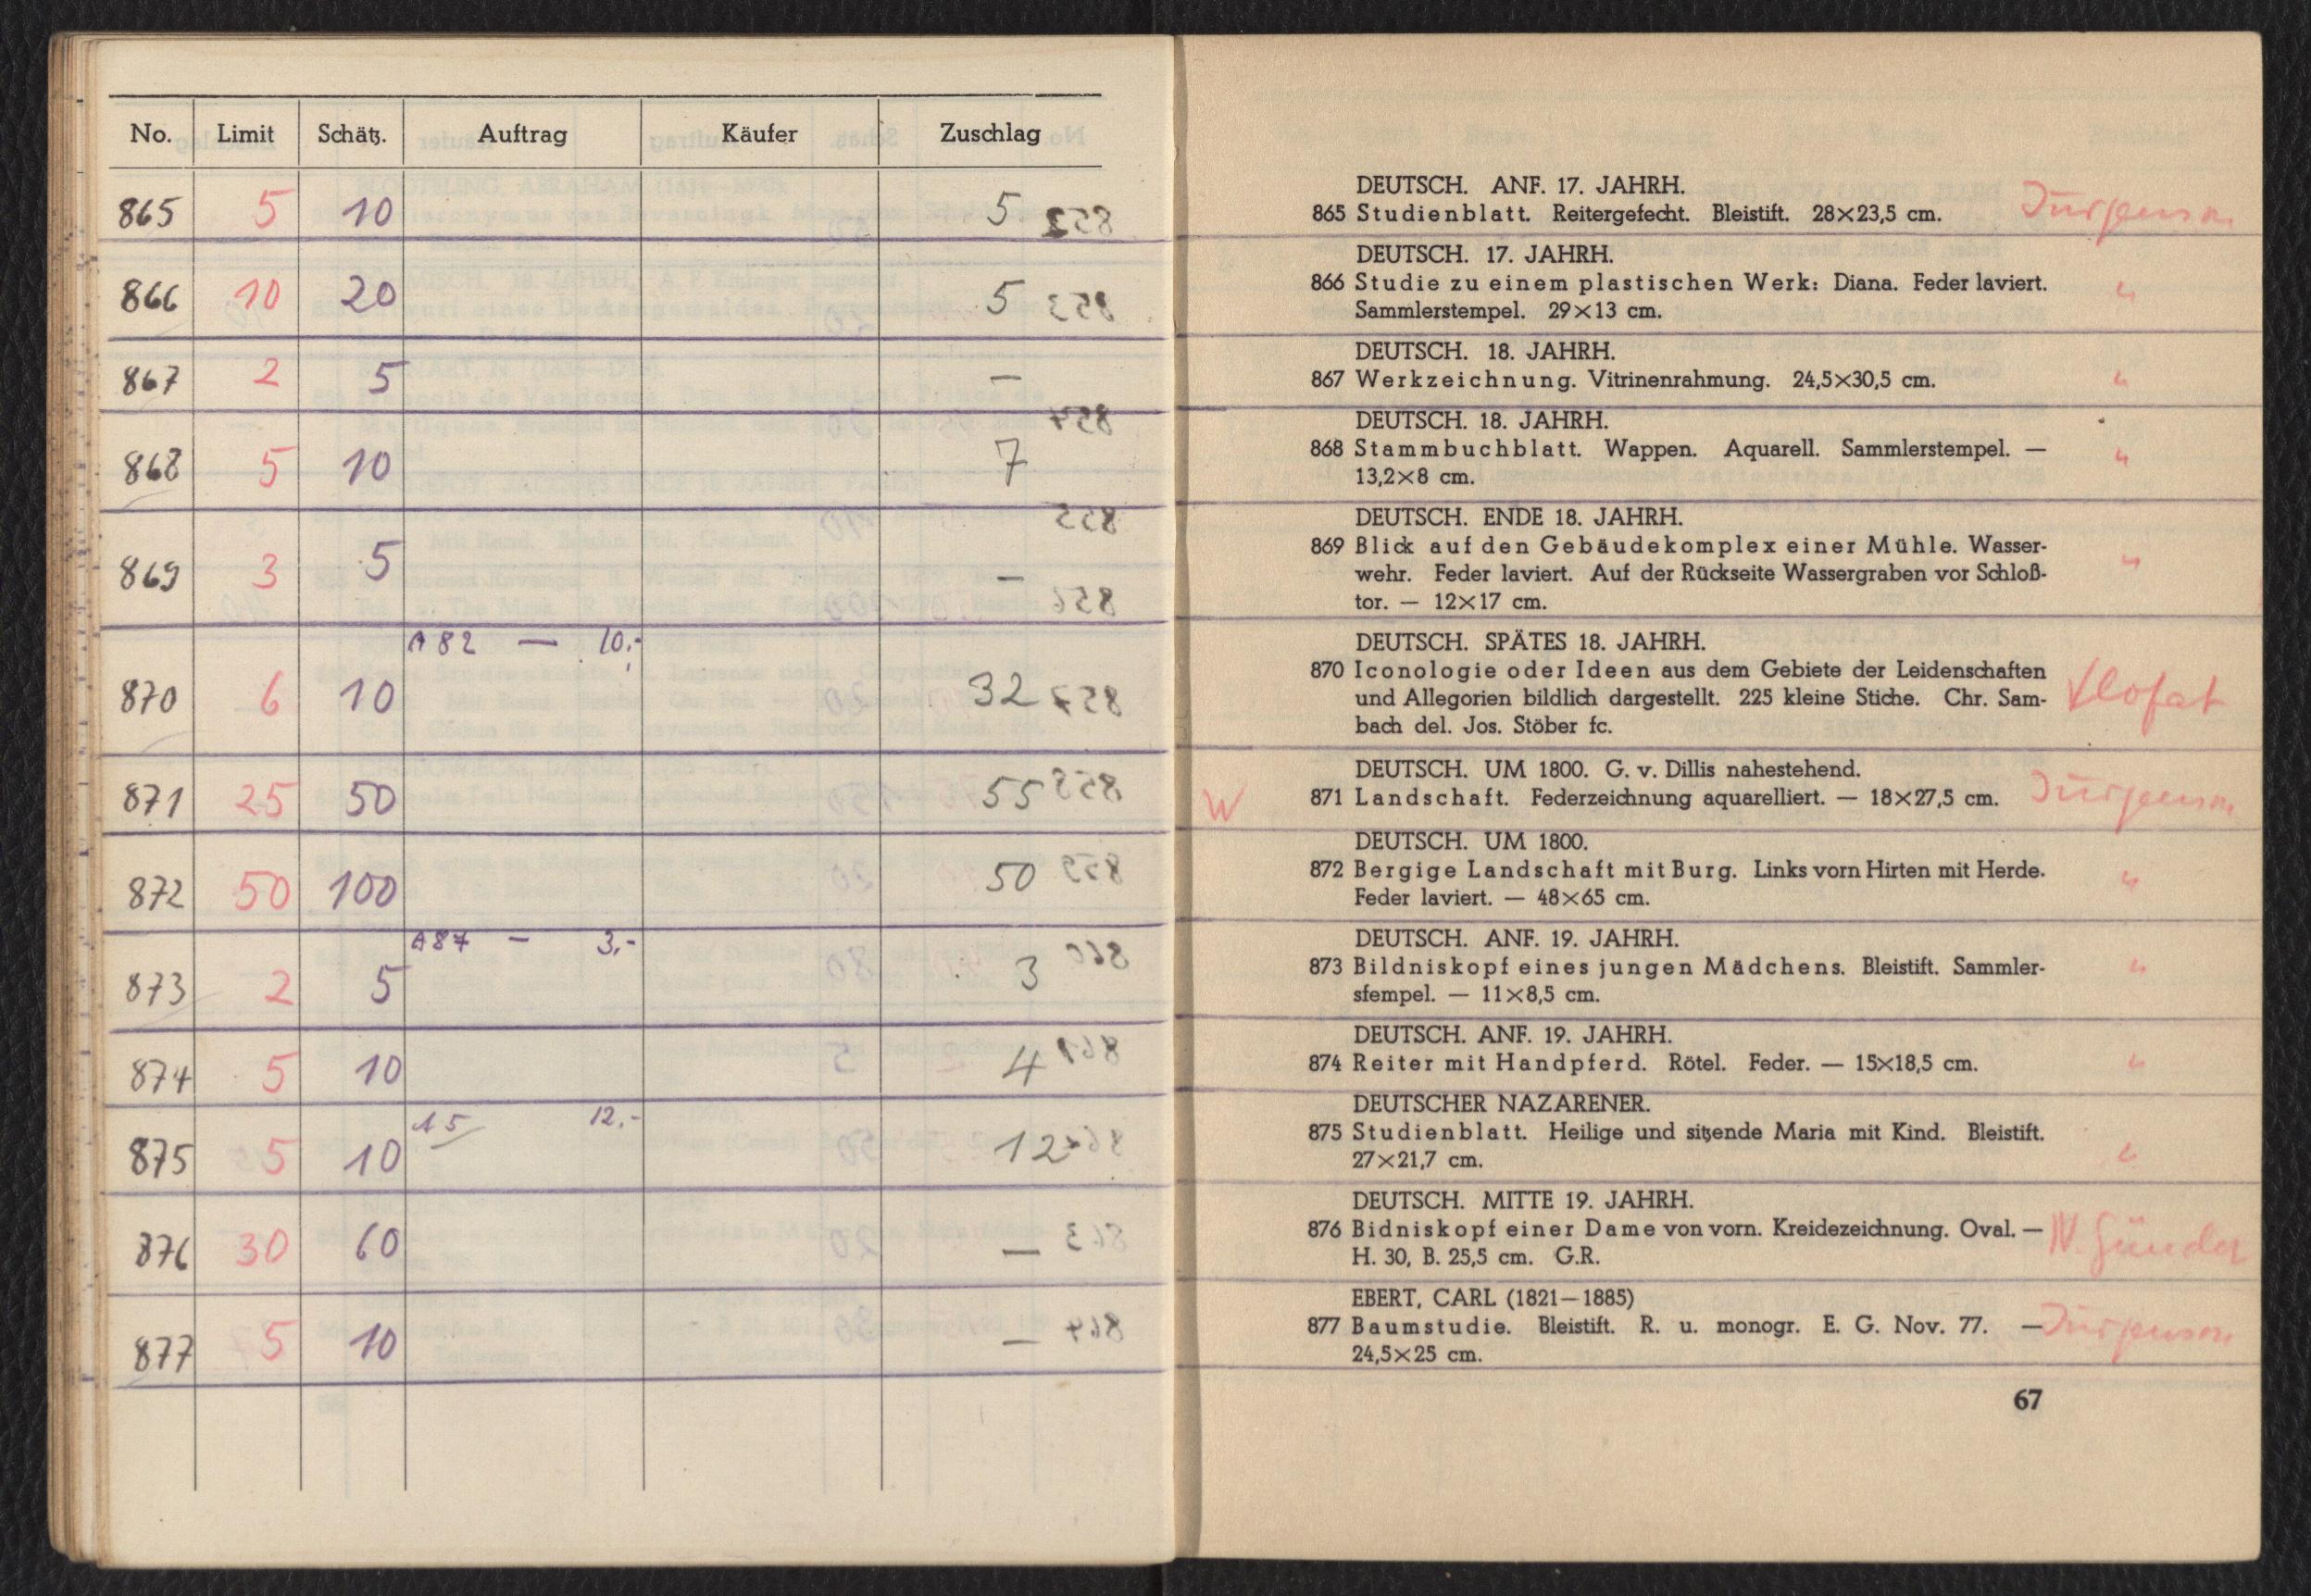 No. Limit Schätz. Auftrag Käufer Zuschlag
865 5 10 5
866 10 20 5
867 2 5 —
868 5 10 7
869 3 5 —
A82 — 10,-
870 6 10 32
871 25 50 55
872 50 100 50
A87 — 3,-
873 2 5 3
874 5 10 4
A5 12,-
875 5 10 12
876 30 60 —
877 5 10 —
DEUTSCH. ANF. 17. JAHRH.
865 Studienblatt. Reitergefecht. Bleistift. 28×23,5 cm. Jürgensen
DEUTSCH. 17. JAHRH.
866 Studie zu einem plastischen Werk: Diana. Feder laviert. "
Sammlerstempel. 29×13 cm.
DEUTSCH. 18. JAHRH.
867 Werkzeichnung. Vitrinenrahmung. 24,5×30,5 cm. "
DEUTSCH. 18. JAHRH.
868 Stammbuchblatt. Wappen. Aquarell. Sammlerstempel. — "
13,2×8 cm.
DEUTSCH. ENDE 18. JAHRH.
869 Blick auf den Gebäudekomplex einer Mühle. Wasser- "
wehr. Feder laviert. Auf der Rückseite Wassergraben vor Schloß-
tor. — 12×17 cm.
DEUTSCH. SPÄTES 18. JAHRH.
870 Iconologie oder Ideen aus dem Gebiete der Leidenschaften
und Allegorien bildlich dargestellt. 225 kleine Stiche. Chr. Sam-
bach del. Jos. Stöber fc.
DEUTSCH. UM 1800. G. v. Dillis nahestehend.
W 871 Landschaft. Federzeichnung aquarelliert. — 18×27,5 cm. Jürgensen
DEUTSCH. UM 1800.
872 Bergige Landschaft mit Burg. Links vorn Hirten mit Herde. "
Feder laviert. — 48×65 cm.
DEUTSCH. ANF. 19. JAHRH.
873 Bildniskopf eines jungen Mädchens. Bleistift. Sammler- "
sfempel. — 11×8,5 cm.
DEUTSCH. ANF. 19. JAHRH.
874 Reiter mit Handpferd. Rötel. Feder. — 15×18,5 cm. "
DEUTSCHER NAZARENER.
875 Studienblatt. Heilige und sitzende Maria mit Kind. Bleistift.
27×21,7 cm. "
DEUTSCH. MITTE 19. JAHRH.
876 Bidniskopf einer Dame von vorn. Kreidezeichnung. Oval. — W. Günder
H. 30, B. 25,5 cm. G.R.
EBERT, CARL (1821—1885)
877 Baumstudie. Bleistift. R. u. monogr. E. G. Nov. 77. — Jürgensen
24,5×25 cm.
67